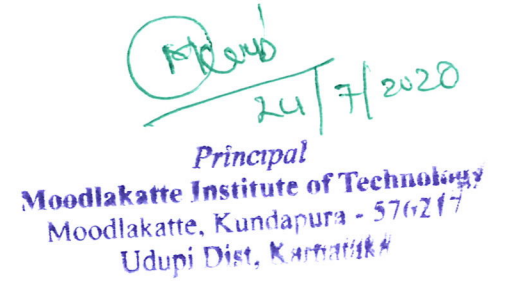 24/7/2020
Principal
Moodlakatte Institute of Technology
Moodlakatte, Kundapura - 576217
Udupi Dist, Karnataka